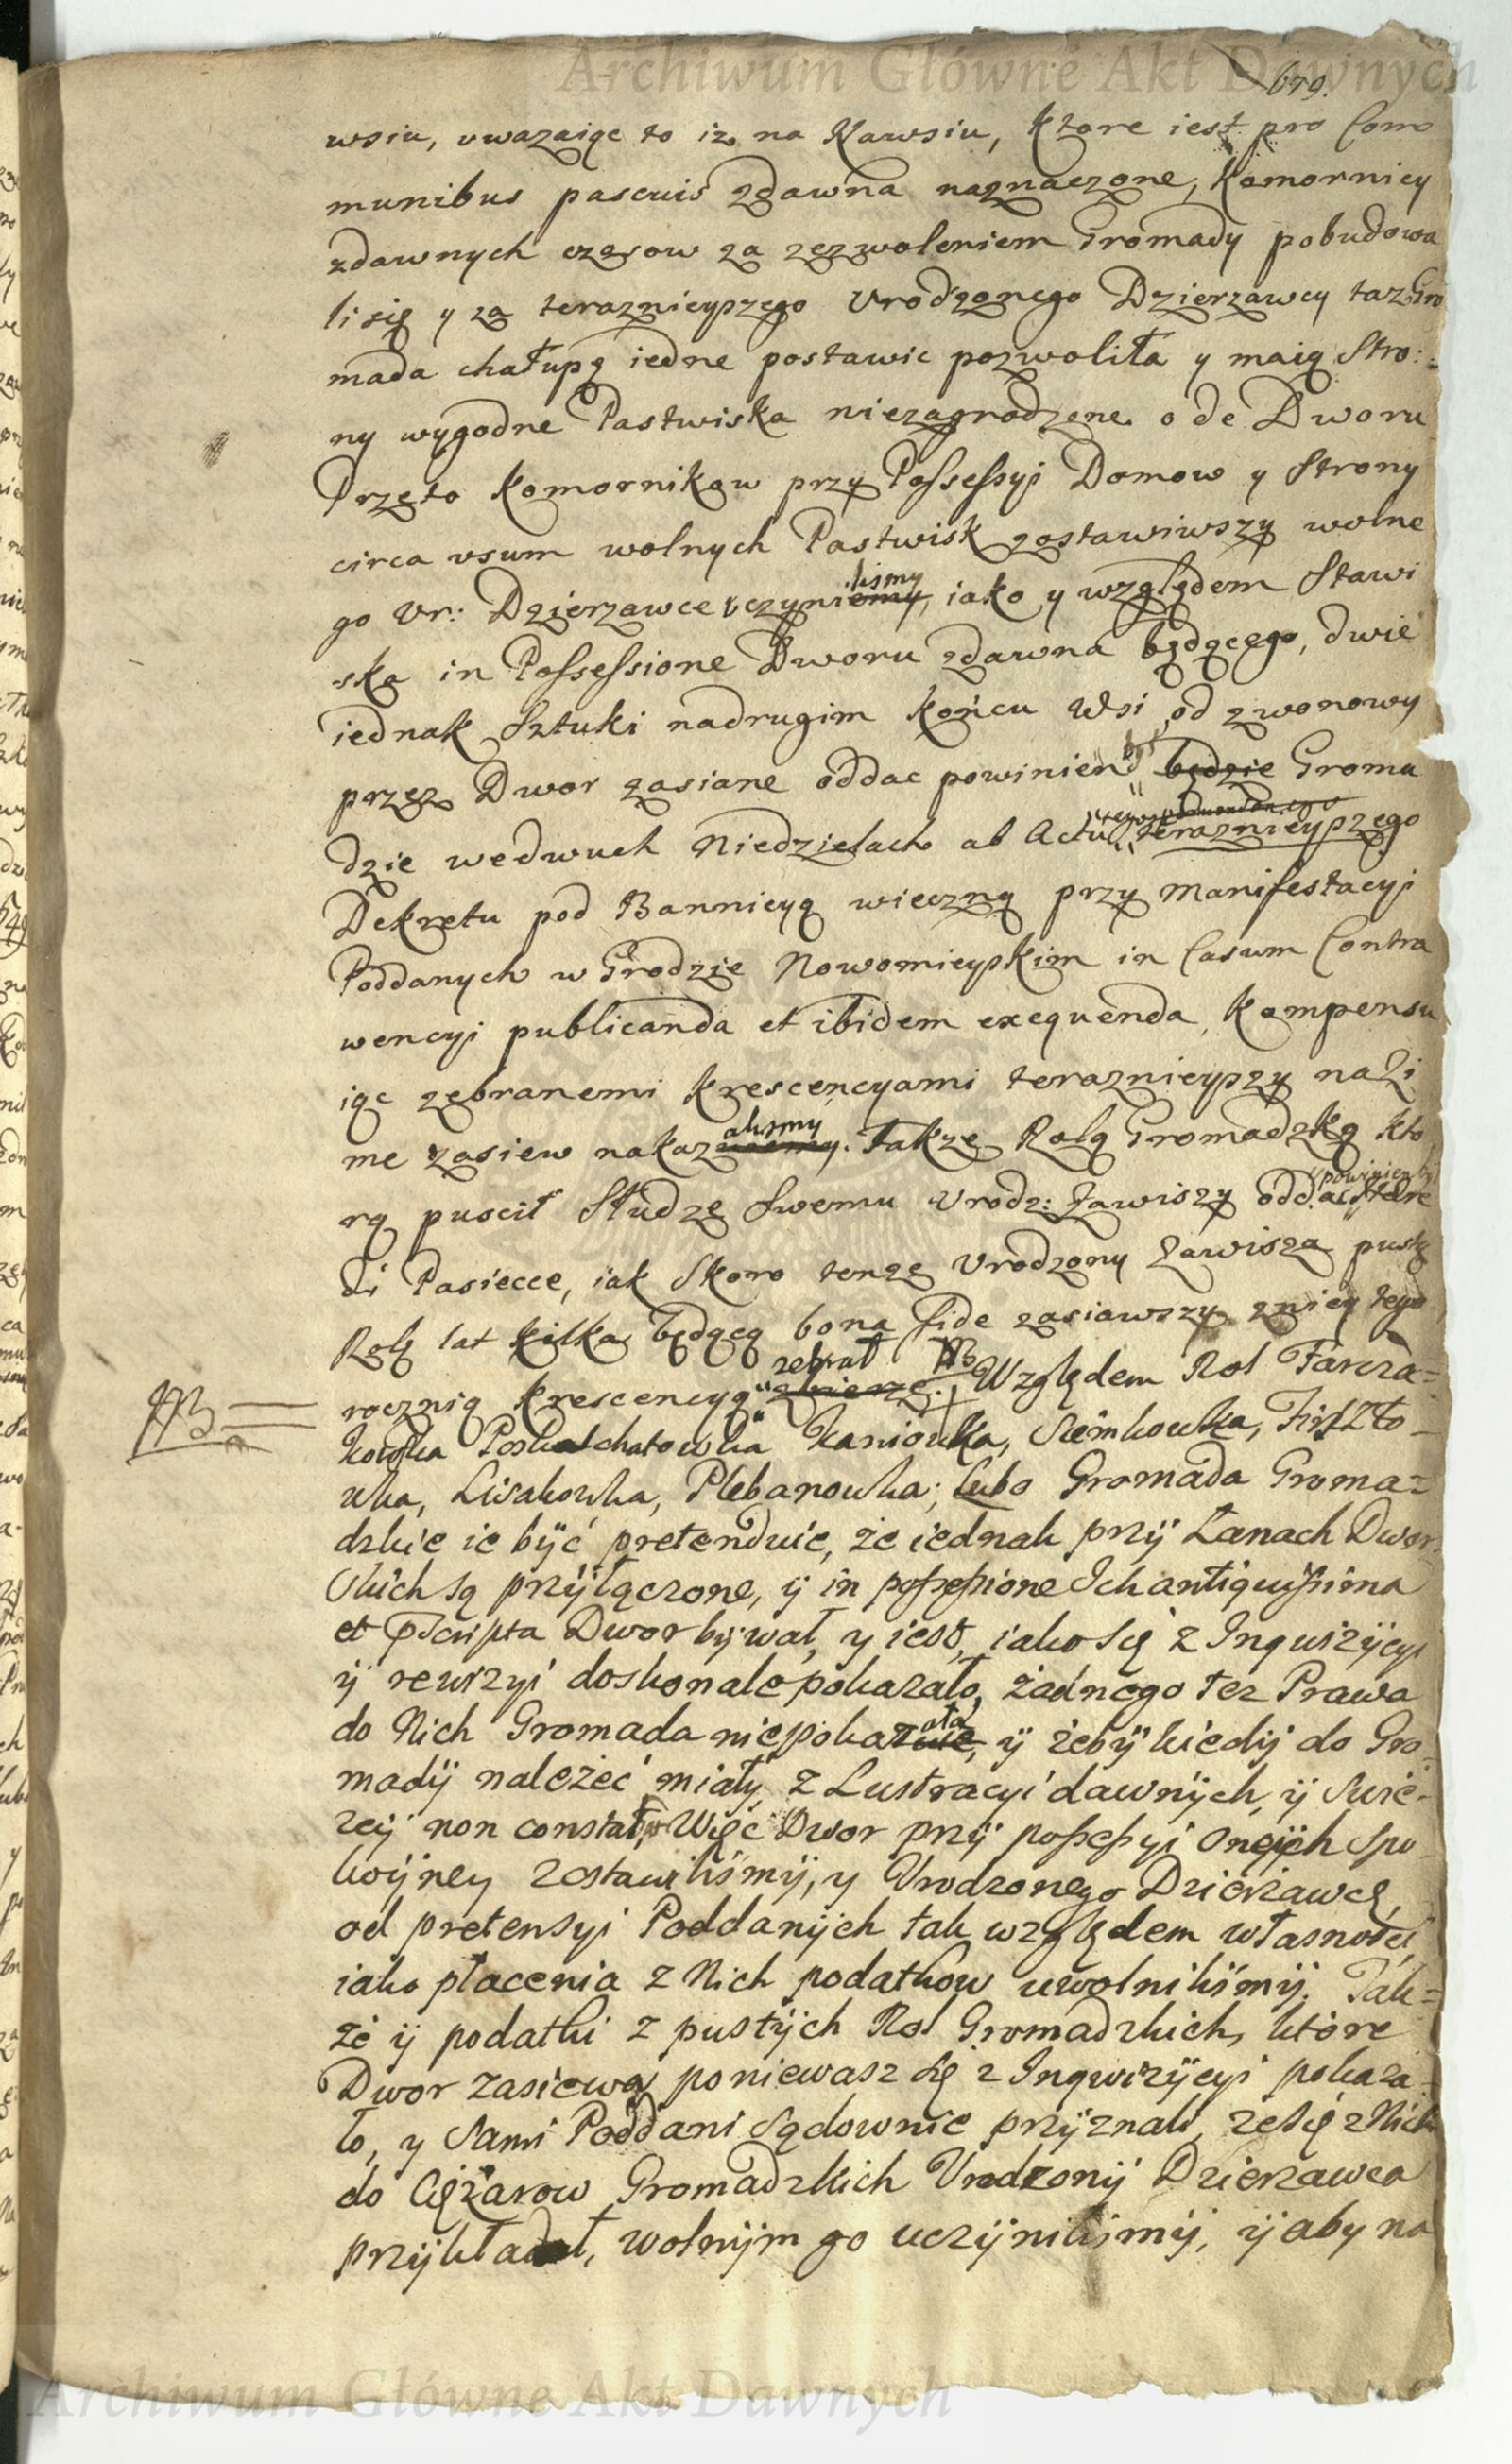 Archiwum Główne Akt Dawnych
679.
wsiu, uwazaiąc to iz na Nawsiu, ktore iest pro Com
munibus pascuis zdawna naznaczone, Komornicy
zdawnych czasow za zezwoleniem Gromady pobudowa
li się y za teraznieyszego Urodzonego Dzierzawcy taz Gro
mada chałupę iedne postawic pozwoliła y maią Stro:
ny wygodne Pastwiska niezagrodzone ode Dworu
Przeto Komornikow przy Possessyi Domow y Strony
circa usum wolnych Pastwisk zostawiwszy wolne
liśmy
go Ur: Dzierzawce uczyniemy, iako y względem Stawi
ska in Possessione Dworu zdawna będącego, dwie
iednak Sztuki nadrugim końcu Wsi od zwonowy
przez Dwor zasiane oddac powinien będzie Groma
dzie wedwuch Niedzielach ab Actu teraznieyszego
Dekretu pod Bannicyą wieczną przy Manifestacyi
Poddanych w Grodzie Nowomieyskim in Casum Contra
wencyi publicanda et ibidem exequenda, Kompensu
iąc zebranemi krescencyami teraznieyszy na Zi
alismy
me zasiew nakazuiemy. Takze Rolą Gromadzką kto
powinien
rą puscił Słudze Swemu Urodz: Zawiszy oddac
di Pasiecce, iak Skoro tenze Urodzony Zawisza pustą
Rolę lat kilka będącą bona fide zasiawszy zniey tego
zebrał NB
roczną krescencyą zbierze. Względem Rol Farcza=
NB
kowka Kaniowka, Siemkowka, Firszto
wka, Lisakowka, Plebanowka; lubo Gromada Groma=
dzkie ie być pretenduie, że iednak przÿ Łanach Dwor
skich są przÿłączone, ÿ in possessione Ich antiquissima
et pscripta Dwor bywał, y iest, iako się z Inquizÿcyi
ÿ rewizyi doskonale pokazało, żadnego tez Prawa
ała
do Nich Gromada niepokazuie, ÿ żebÿ kiedÿ do Gro
madÿ należeć miałÿ, z Lustracyi dawnÿch, ÿ swie-
zeÿ non constat, Więc Dwor przÿ possessyi Onÿch Spo
koÿney zostawiliśmÿ, y Urodzonego Dzierżawcę,
od pretensyi Poddanÿch tak względem własności,
iako płacenia z Nich podatkow uwolniliśmÿ. Tak=
że ÿ podatki z pustÿch Rol Gromadzkich, które
Dwor zasiewa, poniewasz się z Inqwizÿcyi pokaza
ło, y Sami Poddani sądownie przÿznali, ze się z Nich
do Ciężarow Gromadzkich Urodzonÿ Dzierzawca
przÿkładał, wolnÿm go uczÿniliśmÿ, ÿ aby na
Archiwum Główne Akt Dawnych